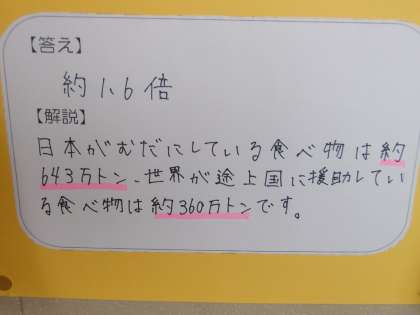 【答え】
約1.6倍
【解説】
日本がむだにしている食べ物は約
643万トン、世界が途上国に援助してい
る食べ物は約360万トンです。